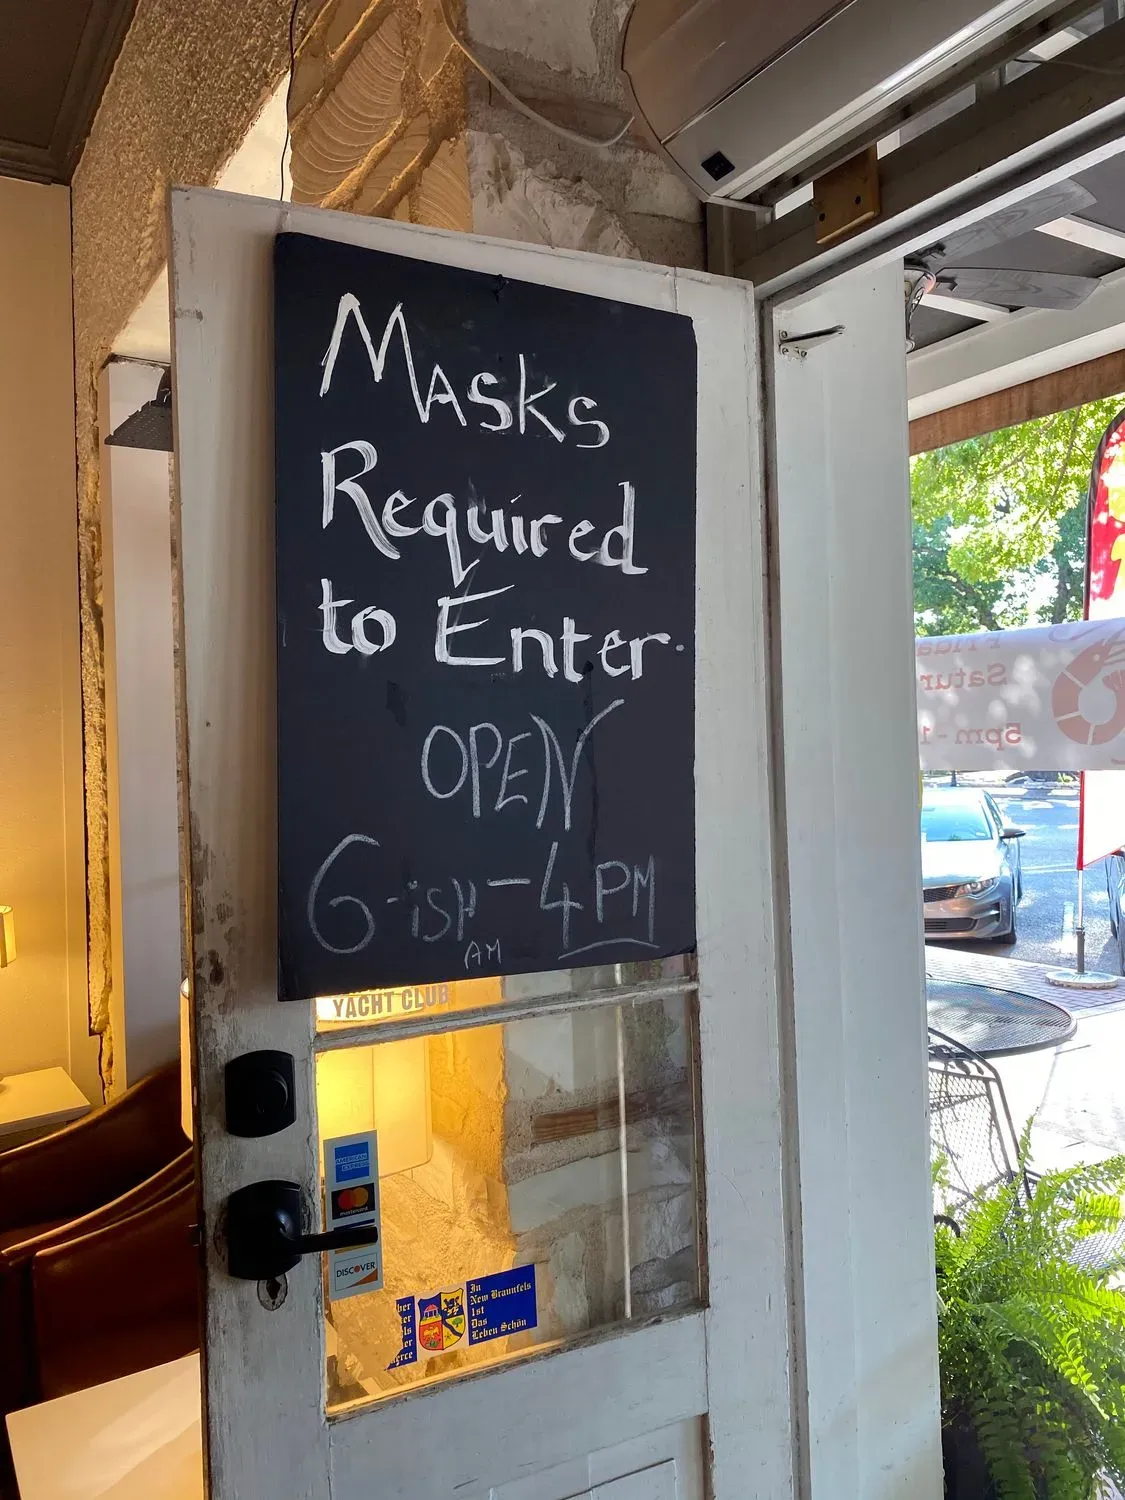 Masks
Required
to Enter.
OPEN
6-ish - 4 PM
AM
YACHT CLUB
AMERICAN
EXPRESS
mastercard
DISCOVER
In
New Braunfels
Ist
Das
Leben Schön
Satur
5pm-1